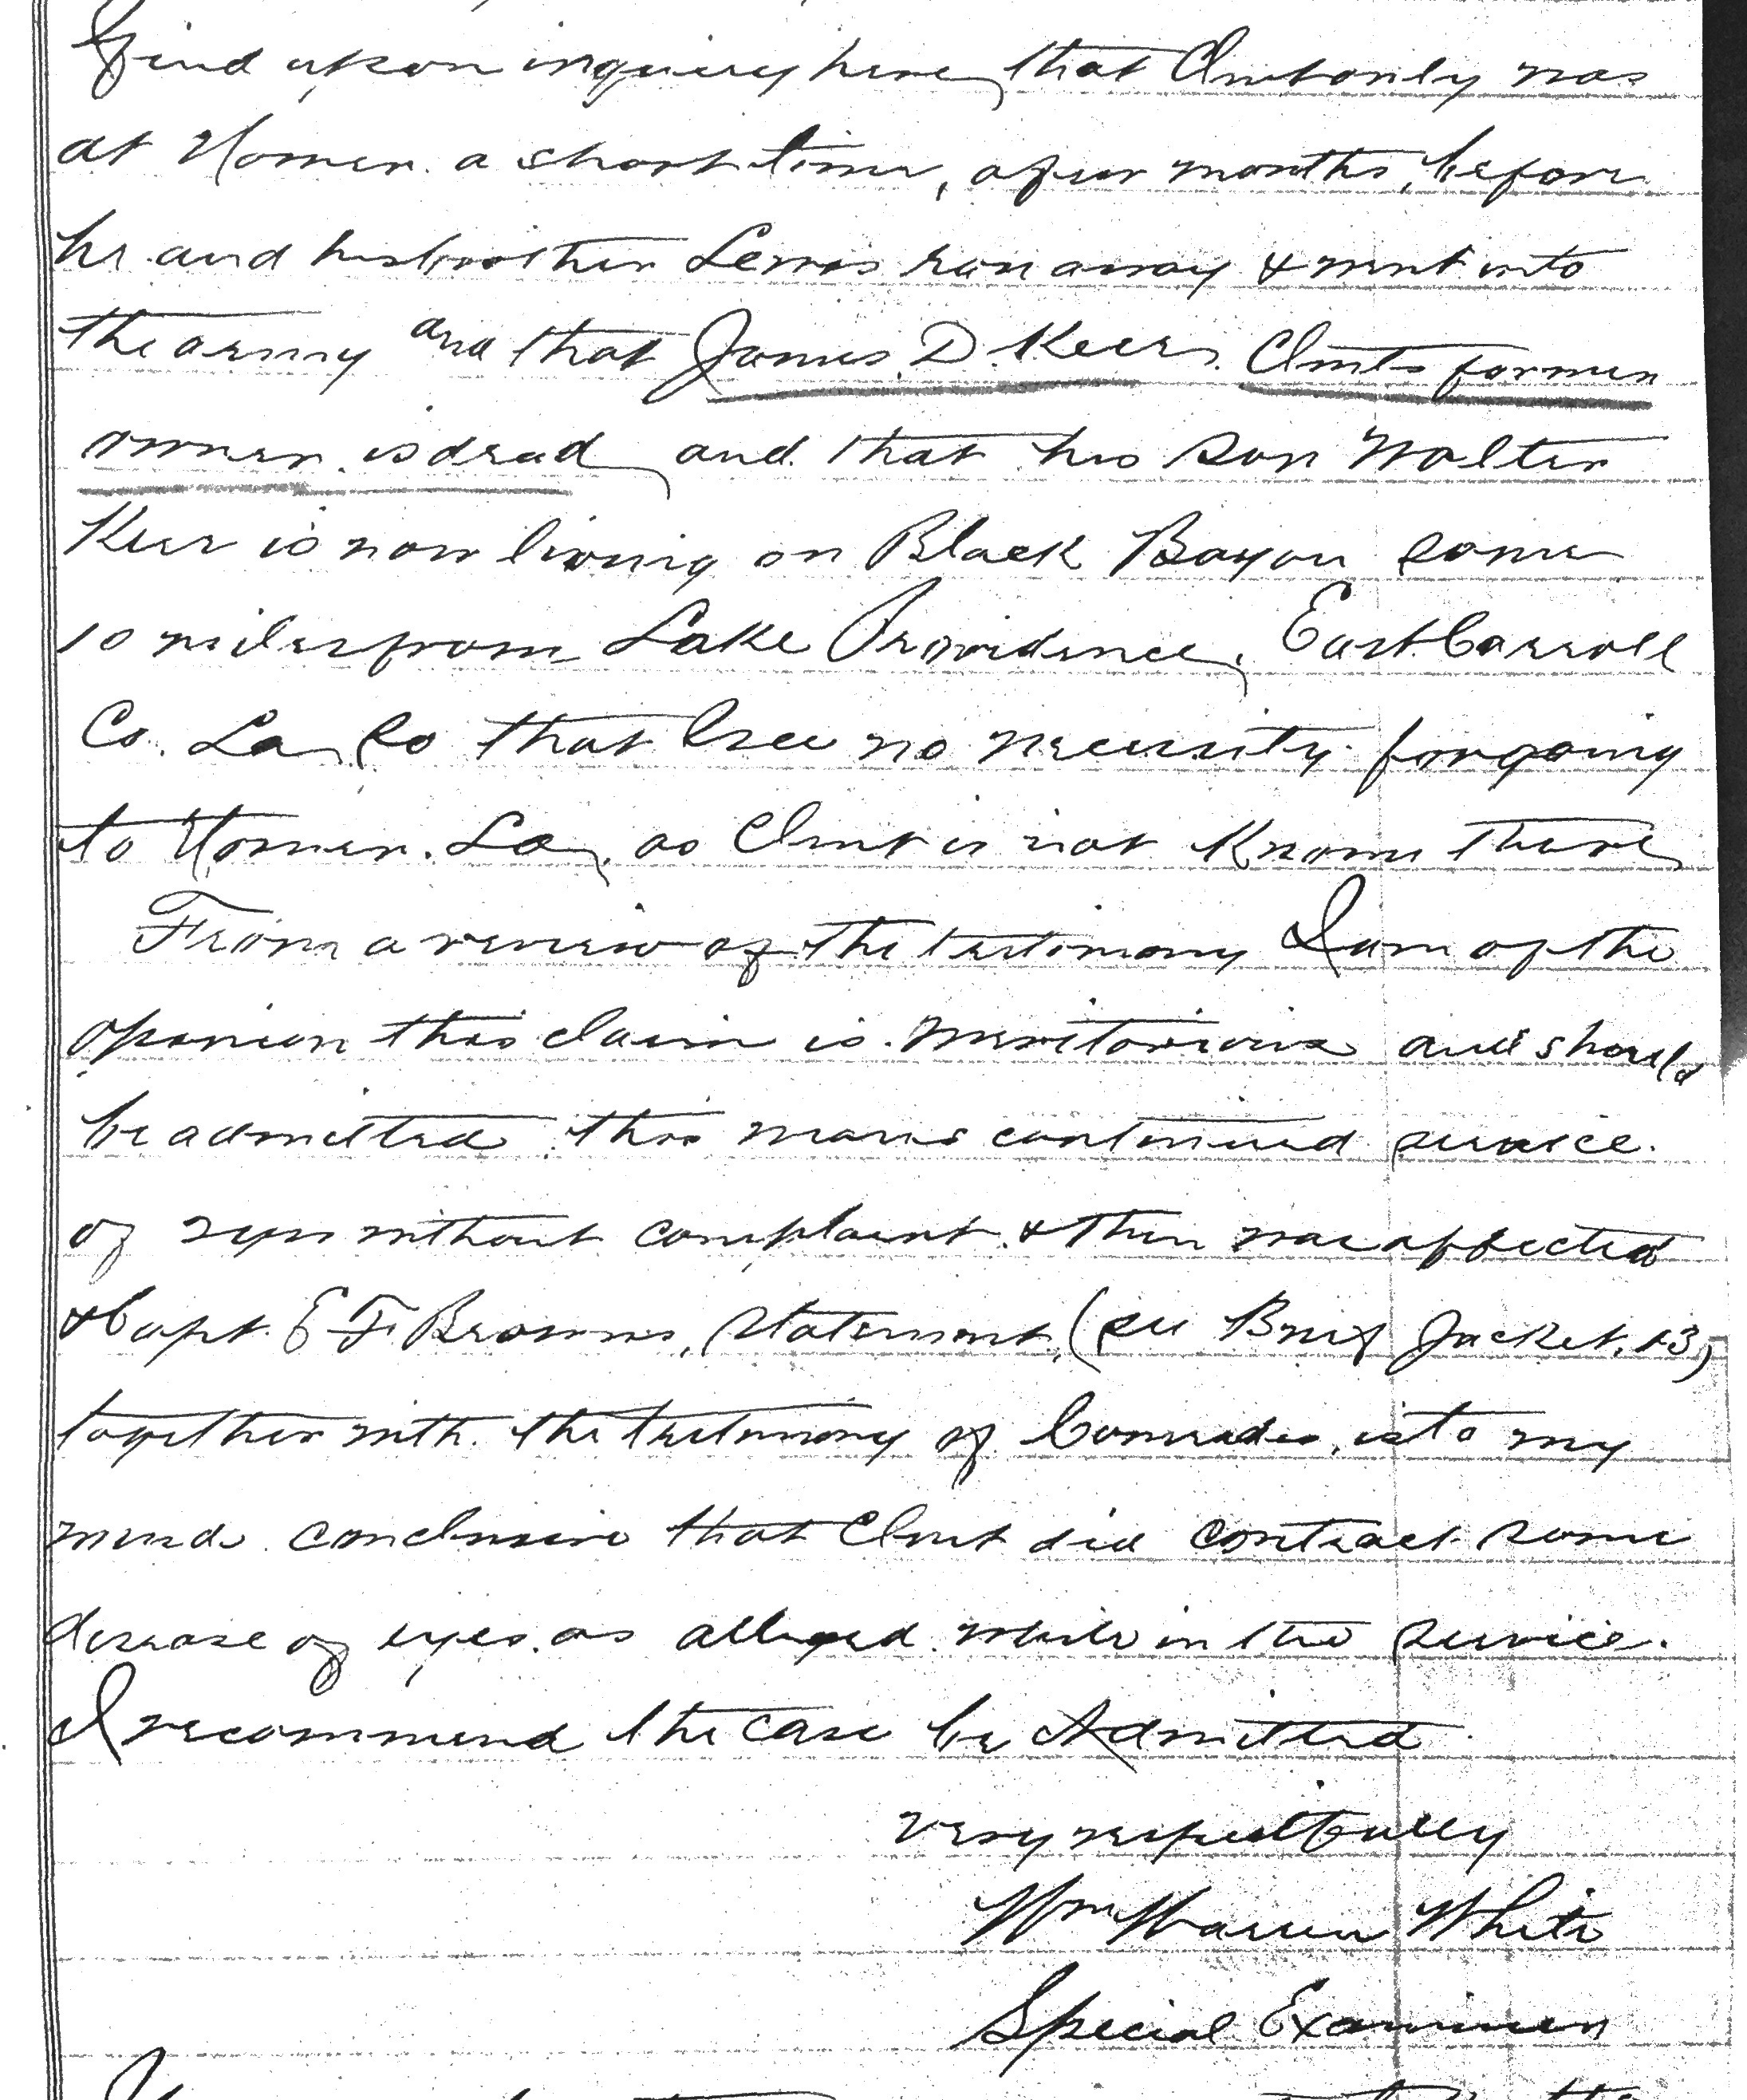 find upon inquiry here, that Clmt only was
at Homer. a short time, a few months, before
he and his brother Lewis ran away & went into
the army and that James. D. Keer. Clmts former
owner. is dead, and that his son Walter
Keer is now living on Black Bayou some
10 miles from Lake Providence, East Carroll
Co. La, so that I see no necessity for going
to Homer. La, as Clmt is not known there
From a review of the testimony I am of the
opinion this claim is meritorious and should
be admitted. this mans continued service.
of without complaint. & then was affected
& Capt. E F Browns, statement, (see Brief Jacket.
together with the testimony of Comrades, is to my
mind conclusive that Clmt did contract some
disease of eyes. as alleged while in the service.
I recommend the case be Admitted
very respectfully
Wm Warren White
Special Examiner